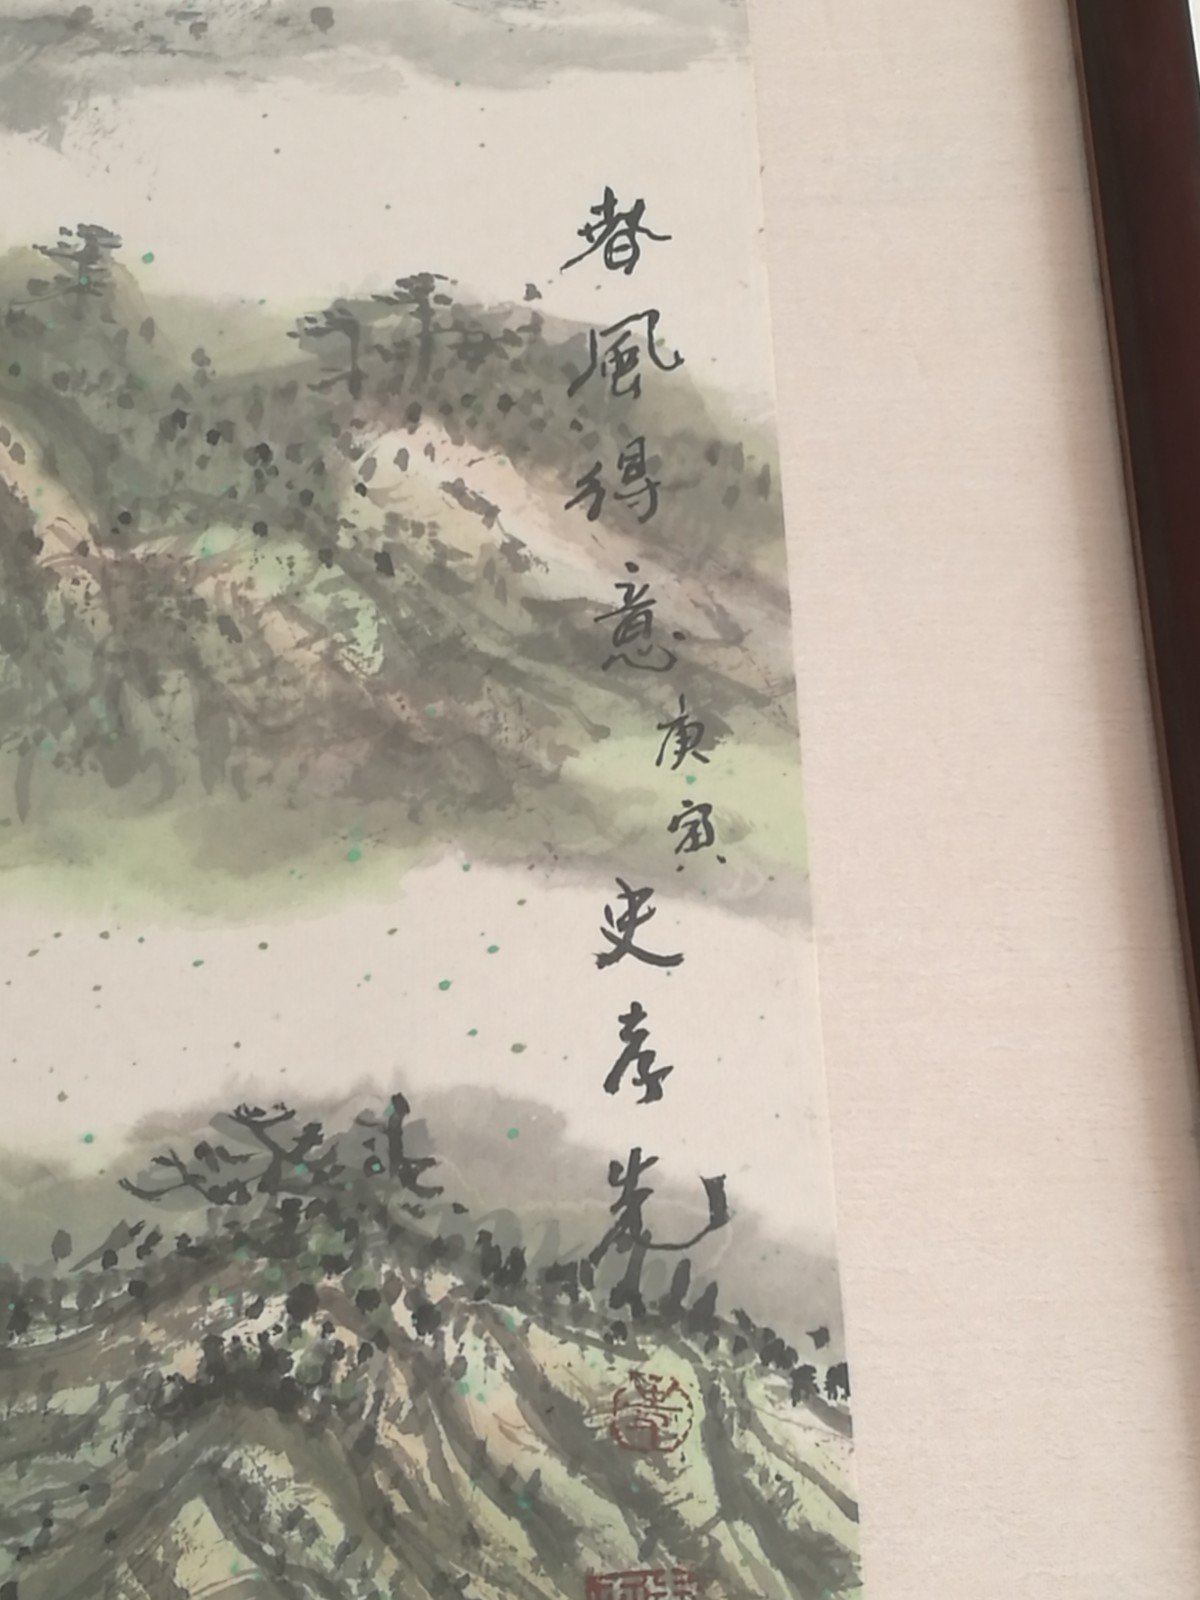 春風得意
庚寅
史孝堯